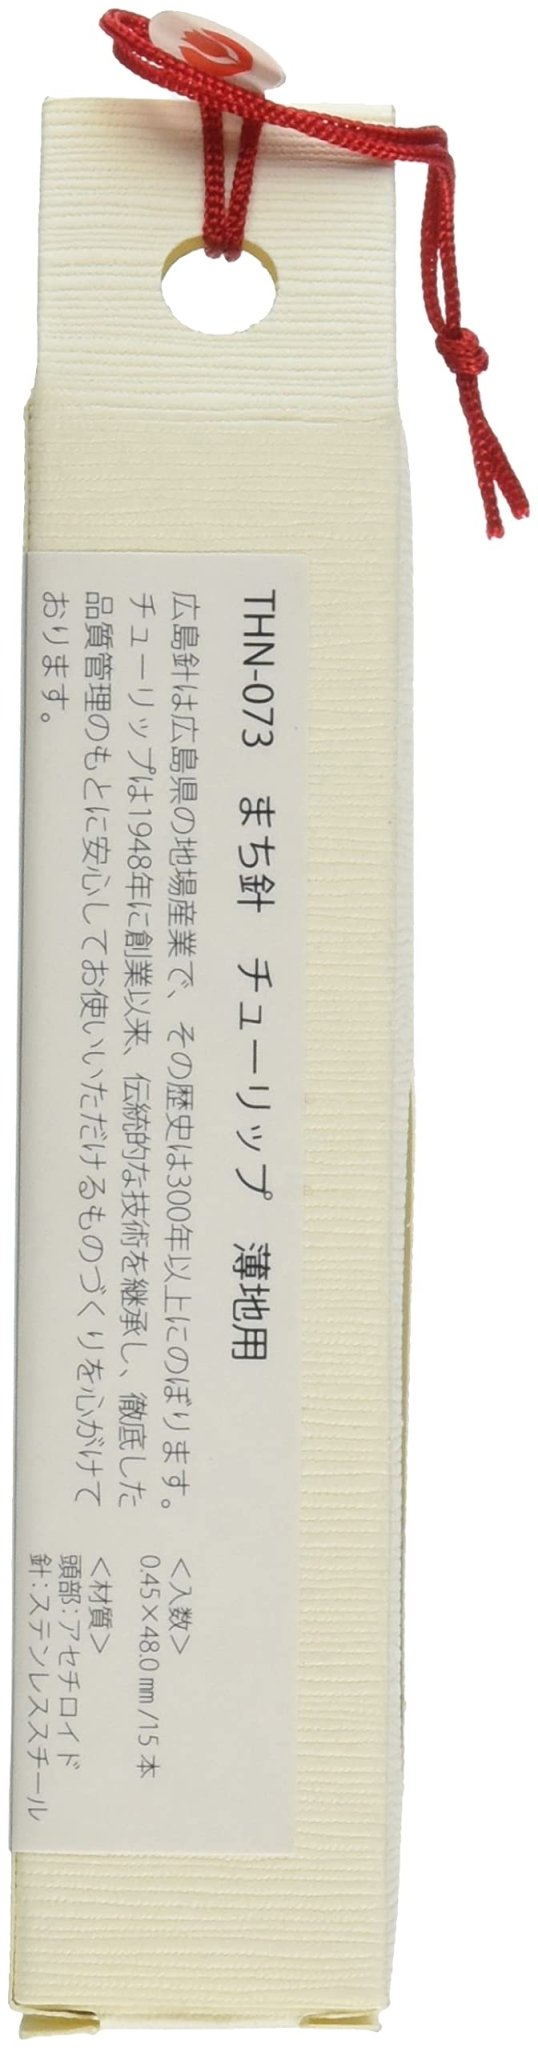 THN-073　まち針　チューリップ　薄地用
広島針は広島県の地場産業で、その歴史は300年以上にのぼります。
チューリップは1948年に創業以来、伝統的な技術を継承し、徹底した
品質管理のもとに安心してお使いいただけるものづくりを心がけて
おります。
＜入数＞
0.45×48.0㎜/15本
＜材質＞
頭部：アセチロイド
針：ステンレススチール